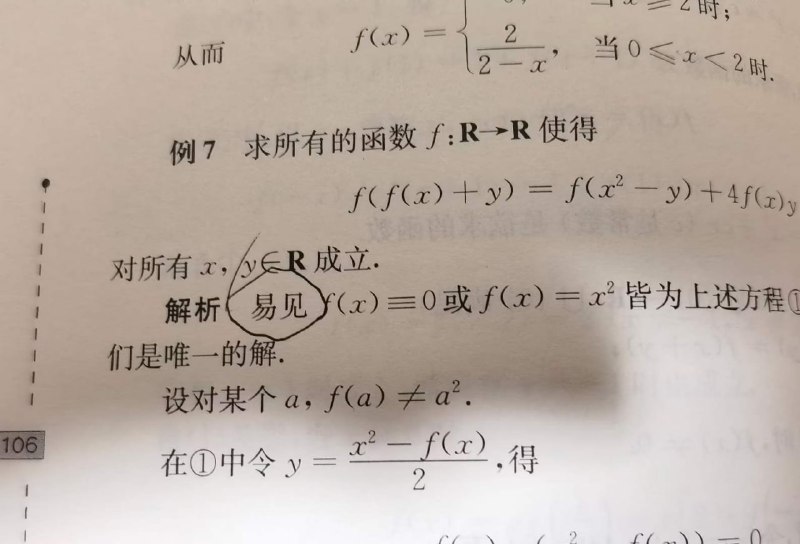 当x≥2时;
从而 f(x) = { 2/(2−x), 当0≤x<2时.
例7 求所有的函数 f:R→R 使得
f(f(x)+y) = f(x²−y)+4f(x)y
对所有 x, y∈R 成立.
解析 易见 f(x)≡0或f(x)=x²皆为上述方程①
们是唯一的解.
设对某个 a, f(a)≠a².
106
在①中令 y = (x²−f(x))/2, 得